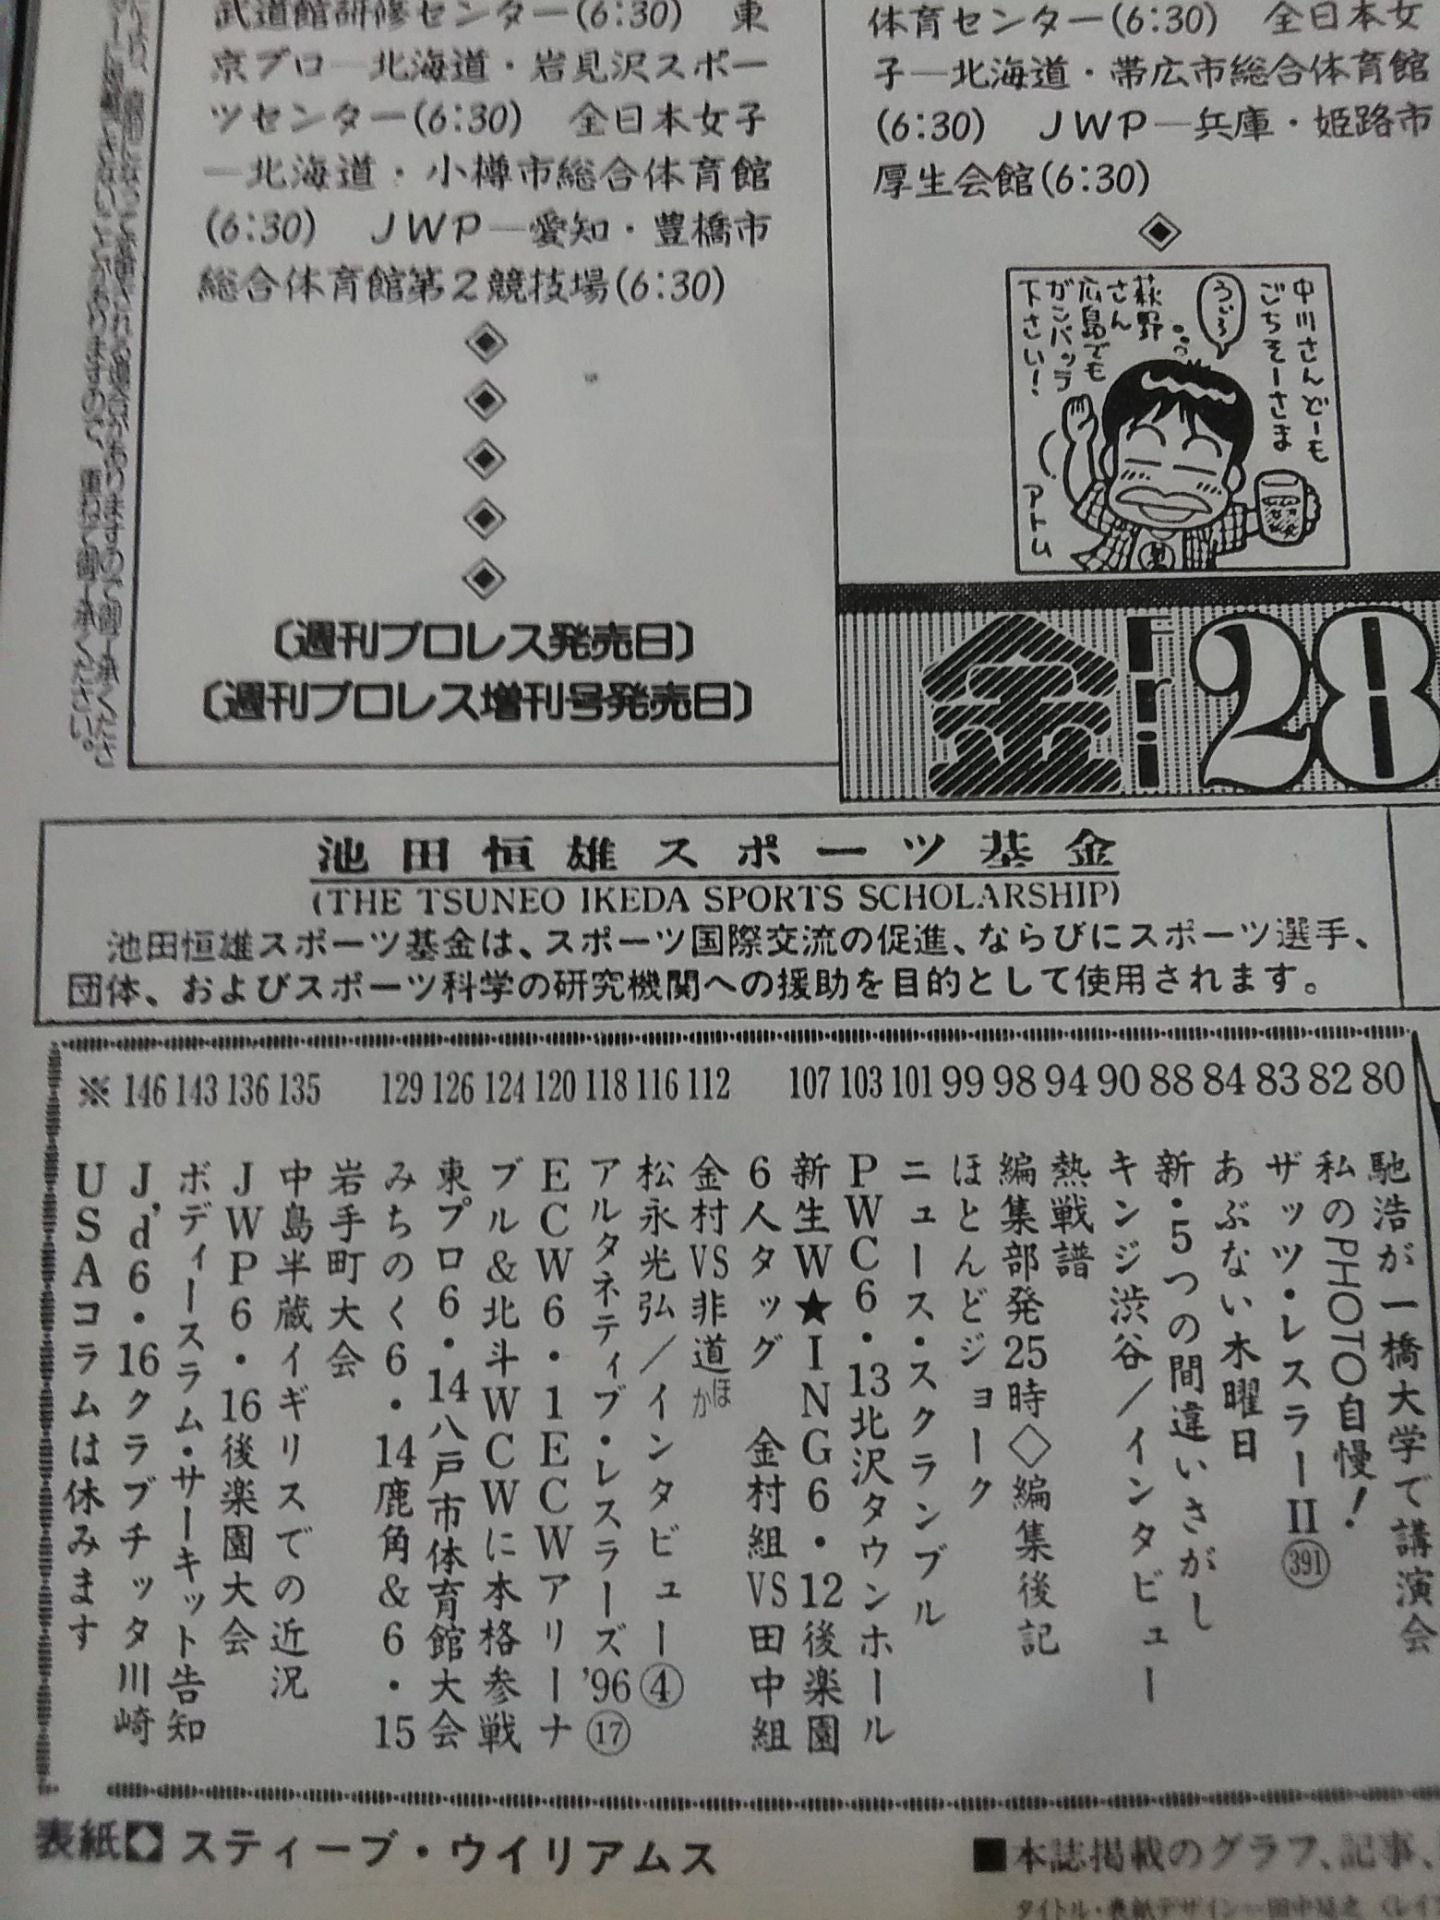 体育センター(6:30)　全日本女
子―北海道・帯広市総合体育館
(6:30)　JWP―兵庫・姫路市
厚生会館(6:30)
中川さんどーも
ごちそーさま
うぃろ
萩野
さん
広島でも
ガンバッテ
下さい!
アトム
金
Fri
28
武道館研修センター(6:30)　東
京プロ―北海道・岩見沢スポー
ツセンター(6:30)　全日本女子
―北海道・小樽市総合体育館
(6:30)　JWP―愛知・豊橋市
総合体育館第2競技場(6:30)
〔週刊プロレス発売日〕
〔週刊プロレス増刊号発売日〕
変更される場合がありますので御了承くださ
ないことがありますので、重ねて御了承ください。
池田恒雄スポーツ基金
(THE TSUNEO IKEDA SPORTS SCHOLARSHIP)
池田恒雄スポーツ基金は、スポーツ国際交流の促進、ならびにスポーツ選手、
団体、およびスポーツ科学の研究機関への援助を目的として使用されます。
80 馳浩が一橋大学で講演会
82 私のPHOTO自慢!
83 ザッツ・レスラーII㊙391
84 あぶない木曜日
88 新・5つの間違いさがし
90 キンジ渋谷/インタビュー
94 熱戦譜
98 編集部発25時◇編集後記
99 ほとんどジョーク
101 ニュース・スクランブル
103 PWC6・13北沢タウンホール
107 新生W★ING6・12後楽園
6人タッグ　金村組VS田中組
112 金村VS非道ほか
116 松永光弘/インタビュー④
118 アルタネティブ・レスラーズ'96⑰
120 ECW6・1ECWアリーナ
124 ブル&北斗WCWに本格参戦
126 東プロ6・14八戸市体育館大会
129 みちのく6・14鹿角&6・15
岩手町大会
135 中島半蔵イギリスでの近況
136 JWP6・16後楽園大会
143 ボディースラム・サーキット告知
146 J'd6・16クラブチッタ川崎
※ USAコラムは休みます
表紙◆スティーブ・ウイリアムス
■本誌掲載のグラフ、記事、
タイトル・表紙デザイン―田中